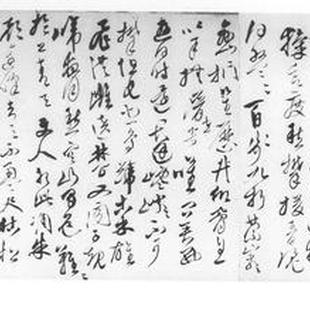 猱欲度愁攀援青泥
何盤々百步九折縈巖
巒捫參歷井仰脅息
以手撫膺坐
何時還畏途巉巖不可
攀但見悲鳥號古木雄
飛雌從繞林間又聞子規
啼夜月愁空山蜀道之難々
於上青天使人聽此凋朱
顏連峰去天不盈尺枯松